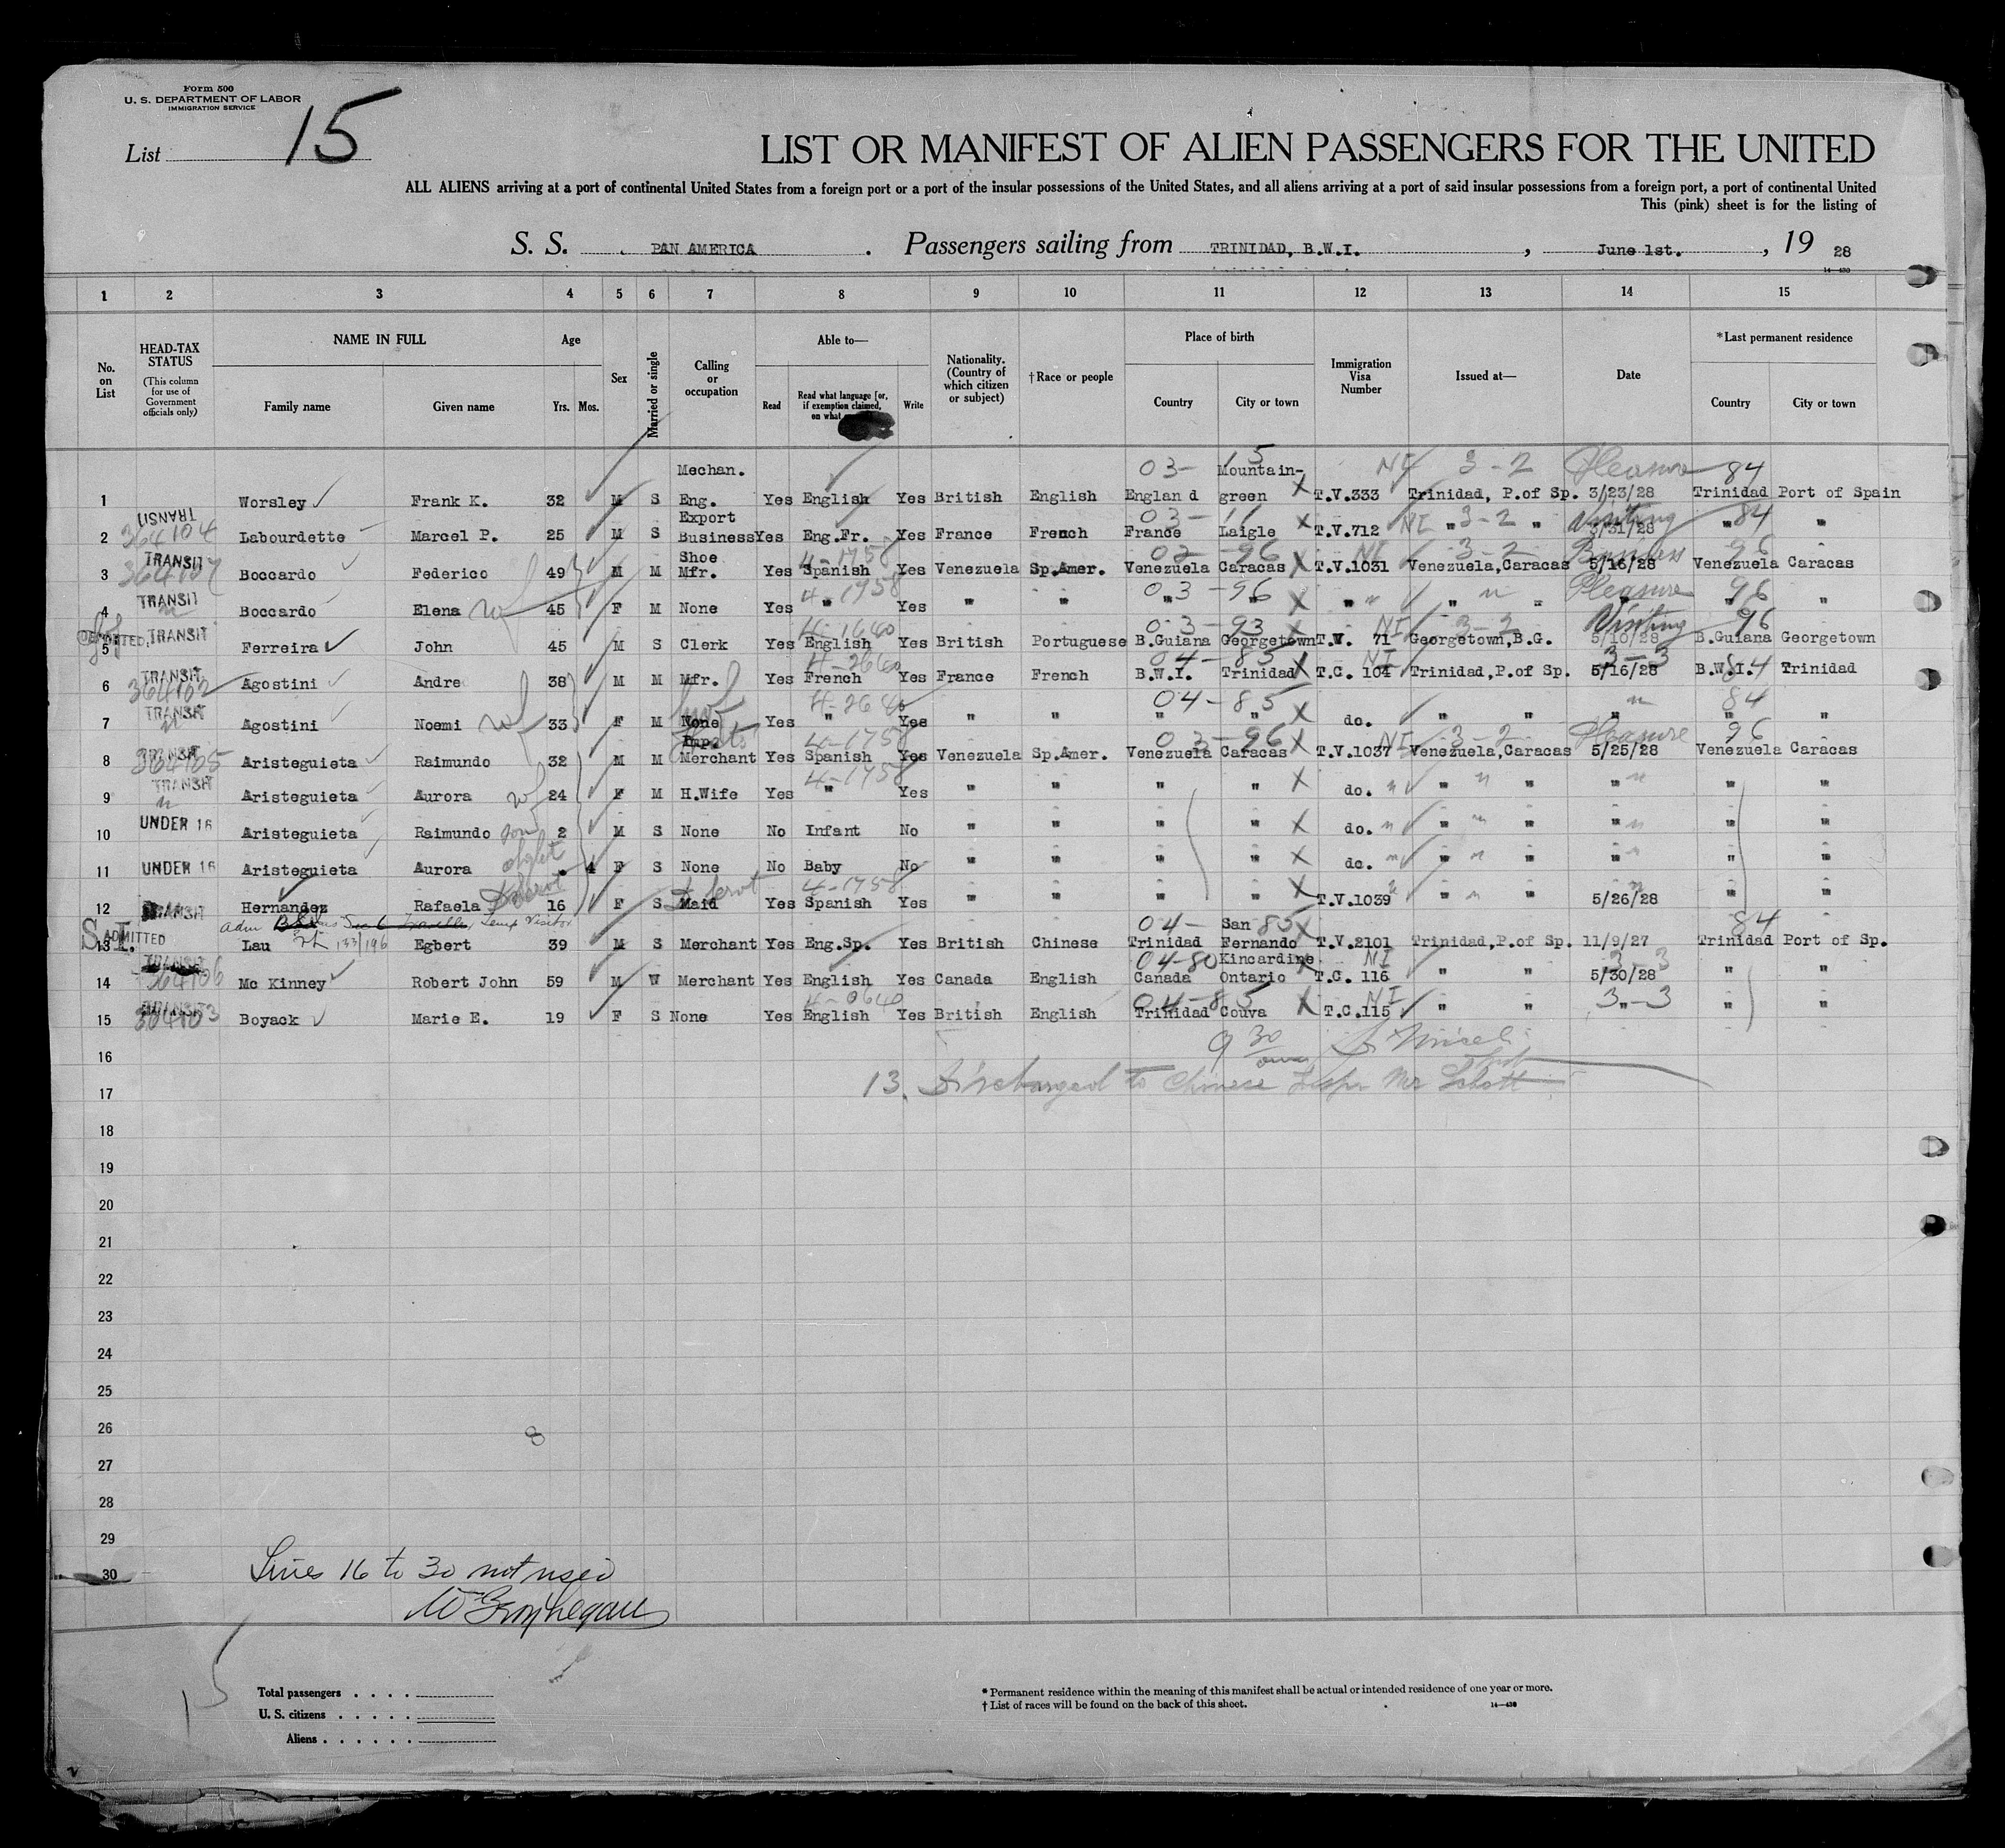 Form 500
U. S. DEPARTMENT OF LABOR
IMMIGRATION SERVICE
List 15
LIST OR MANIFEST OF ALIEN PASSENGERS FOR THE UNITED
ALL ALIENS arriving at a port of continental United States from a foreign port or a port of the insular possessions of the United States, and all aliens arriving at a port of said insular possessions from a foreign port, a port of continental United
This (pink) sheet is for the listing of
S. S. PAN AMERICA. Passengers sailing from TRINIDAD, B.W.I., June 1st., 19 28
14—430
1 2 3 4 5 6 7 8 9 10 11 12 13 14 15
No. on List
HEAD-TAX STATUS (This column for use of Government officials only)
NAME IN FULL
Family name
Given name
Age
Yrs. Mos.
Sex
Married or single
Calling or occupation
Able to—
Read
Read what language [or, if exemption claimed, on what
Write
Nationality. (Country of which citizen or subject)
†Race or people
Place of birth
Country
City or town
Immigration Visa Number
Issued at—
Date
*Last permanent residence
Country
City or town
Mechan. 03- 15 Mountain- NI 3-2 Pleasure 84
1 Worsley Frank K. 32 M S Eng. Yes English Yes British English England green X T.V.333 Trinidad, P.of Sp. 3/23/28 Trinidad Port of Spain
TRANSIT Export 03-11 NI 3-2 Visiting 84
2 364104 Labourdette Marcel P. 25 M S Business Yes Eng.Fr. Yes France French France Laigle X T.V.712 " " 3/31/28 " "
TRANSIT Shoe 4-1758 03-96 NI 3-2 Business 96
3 364107 Boccardo Federico 49 M M Mfr. Yes Spanish Yes Venezuela Sp.Amer. Venezuela Caracas X T.V.1031 Venezuela,Caracas 5/16/28 Venezuela Caracas
TRANSIT 4-1758 03-96 Pleasure 96
4 Boccardo Elena wf 45 F M None Yes " Yes " " " " X " " " " "
TRANSIT 4-1640 03-93 NI 3-2 Visiting 96
5 Ferreira John 45 M S Clerk Yes English Yes British Portuguese B.Guiana Georgetown T.V. 71 Georgetown,B.G. 5/10/28 B.Guiana Georgetown
TRANSIT 4-2640 04-85 NI 3-3
6 364102 Agostini Andre 38 M M Mfr. Yes French Yes France French B.W.I. Trinidad X T.C. 104 Trinidad,P.of Sp. 5/16/28 B.W.I. 84 Trinidad
TRANSIT 4-2640 04-85 84
7 Agostini Noemi wf 33 F M None Yes " Yes " " " " X do. " " " " "
TRANSIT Imp. 4-1758 03-96 NI 3-2 Pleasure 96
8 364105 Aristeguieta Raimundo 32 M M Merchant Yes Spanish Yes Venezuela Sp.Amer. Venezuela Caracas X T.V.1037 Venezuela,Caracas 5/25/28 Venezuela Caracas
TRANSIT 4-1758
9 Aristeguieta Aurora wf 24 F M H.Wife Yes " Yes " " " " X do. " " " " "
UNDER 16
10 Aristeguieta Raimundo son 2 M S None No Infant No " " " " X do. " " " " "
11 UNDER 16 Aristeguieta Aurora 4 F S None No Baby No " " " " X do. " " " " "
4-1758
12 TRANSIT Hernandez Rafaela 16 F S Maid Yes Spanish Yes " " " " X T.V.1039 " " 5/26/28 " "
S.I. ADMITTED adm Temp Visitor 04- San 85 84
13 Lau Egbert 39 M S Merchant Yes Eng.Sp. Yes British Chinese Trinidad Fernando X T.V.2101 Trinidad,P.of Sp. 11/9/27 Trinidad Port of Sp.
TRANSIT 04-80 Kincardine NI 3-3
14 364106 Mc Kinney Robert John 59 M W Merchant Yes English Yes Canada English Canada Ontario X T.C. 116 " " 5/30/28 " "
TRANSIT 4-0640 04-85 NI 3-3
15 364103 Boyack Marie E. 19 F S None Yes English Yes British English Trinidad Couva X T.C.115 " " " " "
16 9 30
17 13. Discharged to Chinese Insp Mr
18
19
20
21
22
23
24
25
26 8
27
28
29
30 Lines 16 to 30 not used
15
Total passengers . . . .
U. S. citizens . . . . .
Aliens . . . . . .
* Permanent residence within the meaning of this manifest shall be actual or intended residence of one year or more.
† List of races will be found on the back of this sheet. 14—430